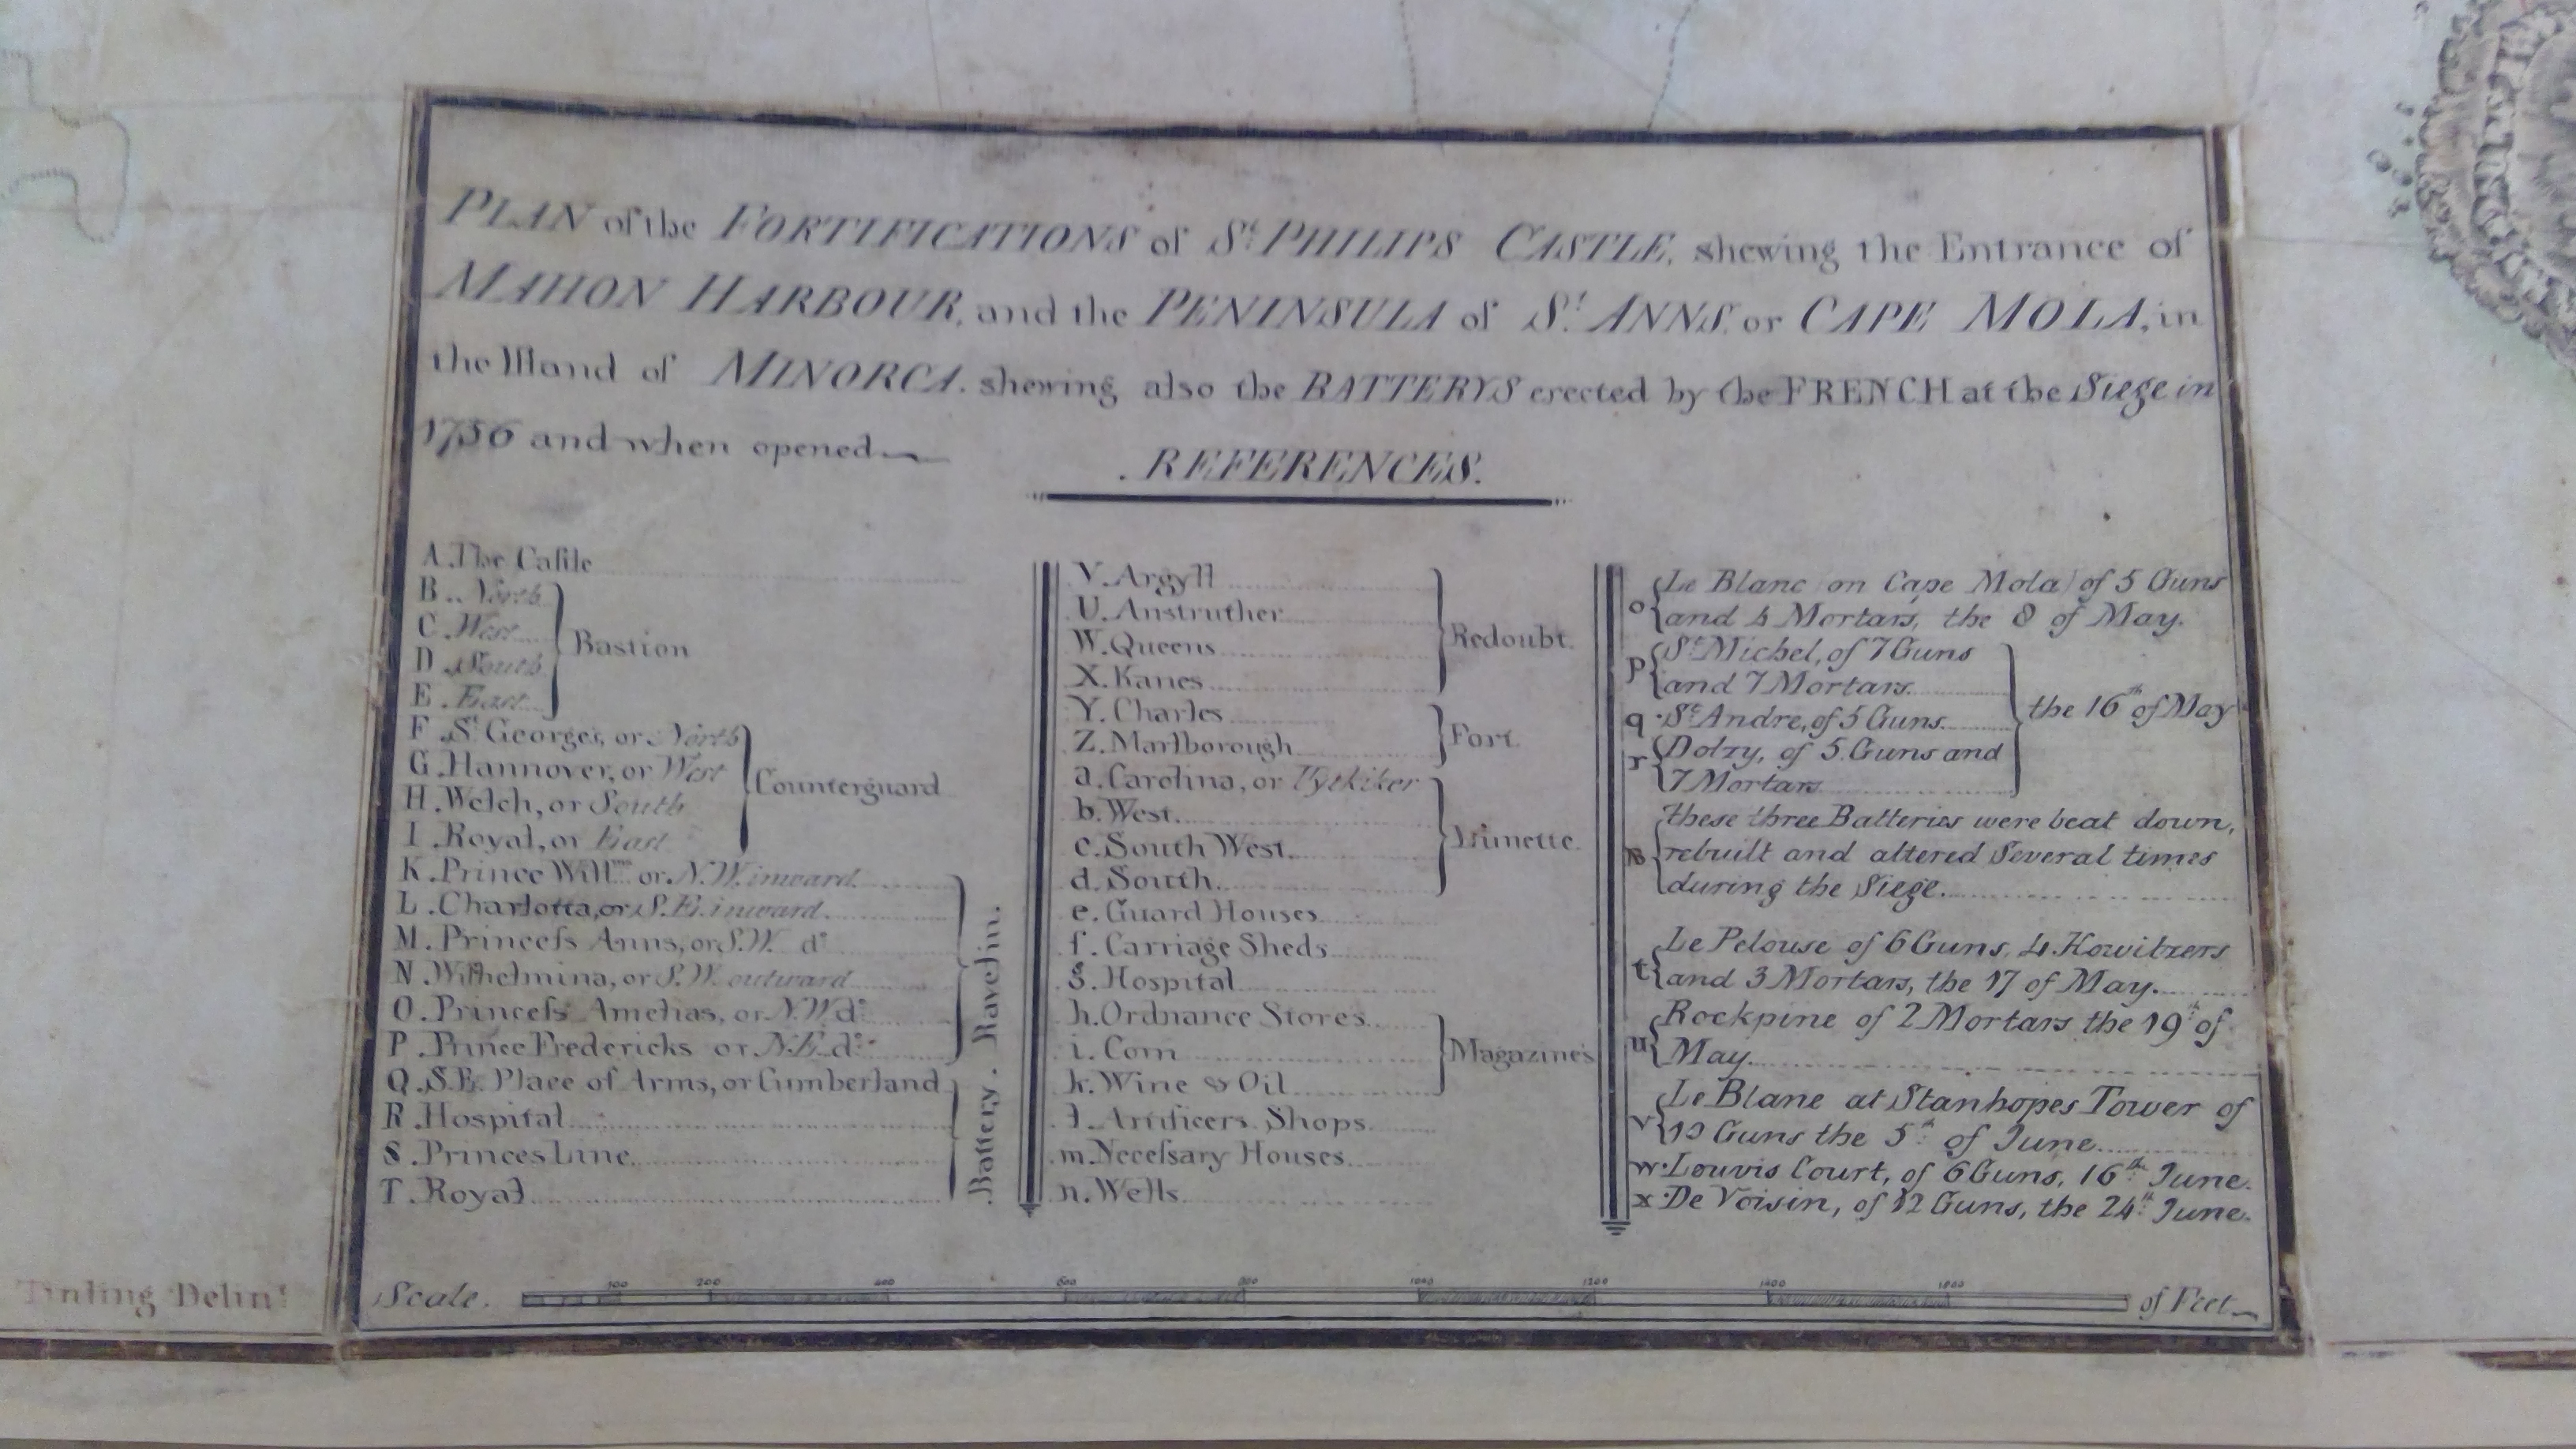 PLAN of the FORTIFICATIONS of St. PHILIPS CASTLE, shewing the Entrance of
MAHON HARBOUR, and the PENINSULA of St. ANNS. or CAPE MOLA, in
the Island of MINORCA. shewing also the BATTERYS erected by the FRENCH at the Siege in
1756 and when opened
REFERENCES.
A. The Castle
B. North
C. West
D. South
E. East
Bastion
F. St. Georges, or North
G. Hannover, or West
H. Welch, or South
I. Royal, or East
Counterguard
K. Prince Willm. or N.W. inward.
L. Charlotta, or S.E. inward.
M. Princess Anns, or S.W. do.
N. Wilhelmina, or S.W. outward
O. Princess Amelias, or N.W. do.
P. Prince Fredericks or N.E. do.
Ravelin.
Q. S.E. Place of Arms, or Cumberland
R. Hospital
S. Princes Line
T. Royal
Battery.
V. Argyll
U. Anstruther
W. Queens
X. Kanes
Redoubt.
Y. Charles
Z. Marlborough
Fort.
a. Carolina, or
b. West.
c. South West.
d. South.
Lunette.
e. Guard Houses
f. Carriage Sheds
g. Hospital
h. Ordnance Stores
i. Corn
k. Wine & Oil
Magazines
l. Artificers Shops.
m. Necessary Houses
n. Wells
o Le Blanc (on Cape Mola) of 5 Guns
and 4 Mortars, the 8 of May.
p St. Michel, of 7 Guns
and 7 Mortars
q. St. Andre, of 5 Guns.
r Dolzy, of 5. Guns and
7 Mortars
the 16th of May
These three Batteries were beat down,
rebuilt and altered Several times
during the Siege.
t Le Pelouse of 6 Guns, 4. Howitzers
and 3 Mortars, the 17 of May.
u Rockpine of 2 Mortars the 19th of
May.
v Le Blanc at Stanhopes Tower of
Guns the 5th of June
w. Louvis Court, of 6 Guns, 16th June.
x. De Voisin, of 12 Guns, the 24th June.
Scale. 100 200 400 600 800 1000 1200 1400 1600 of Feet
Tinling Delint.